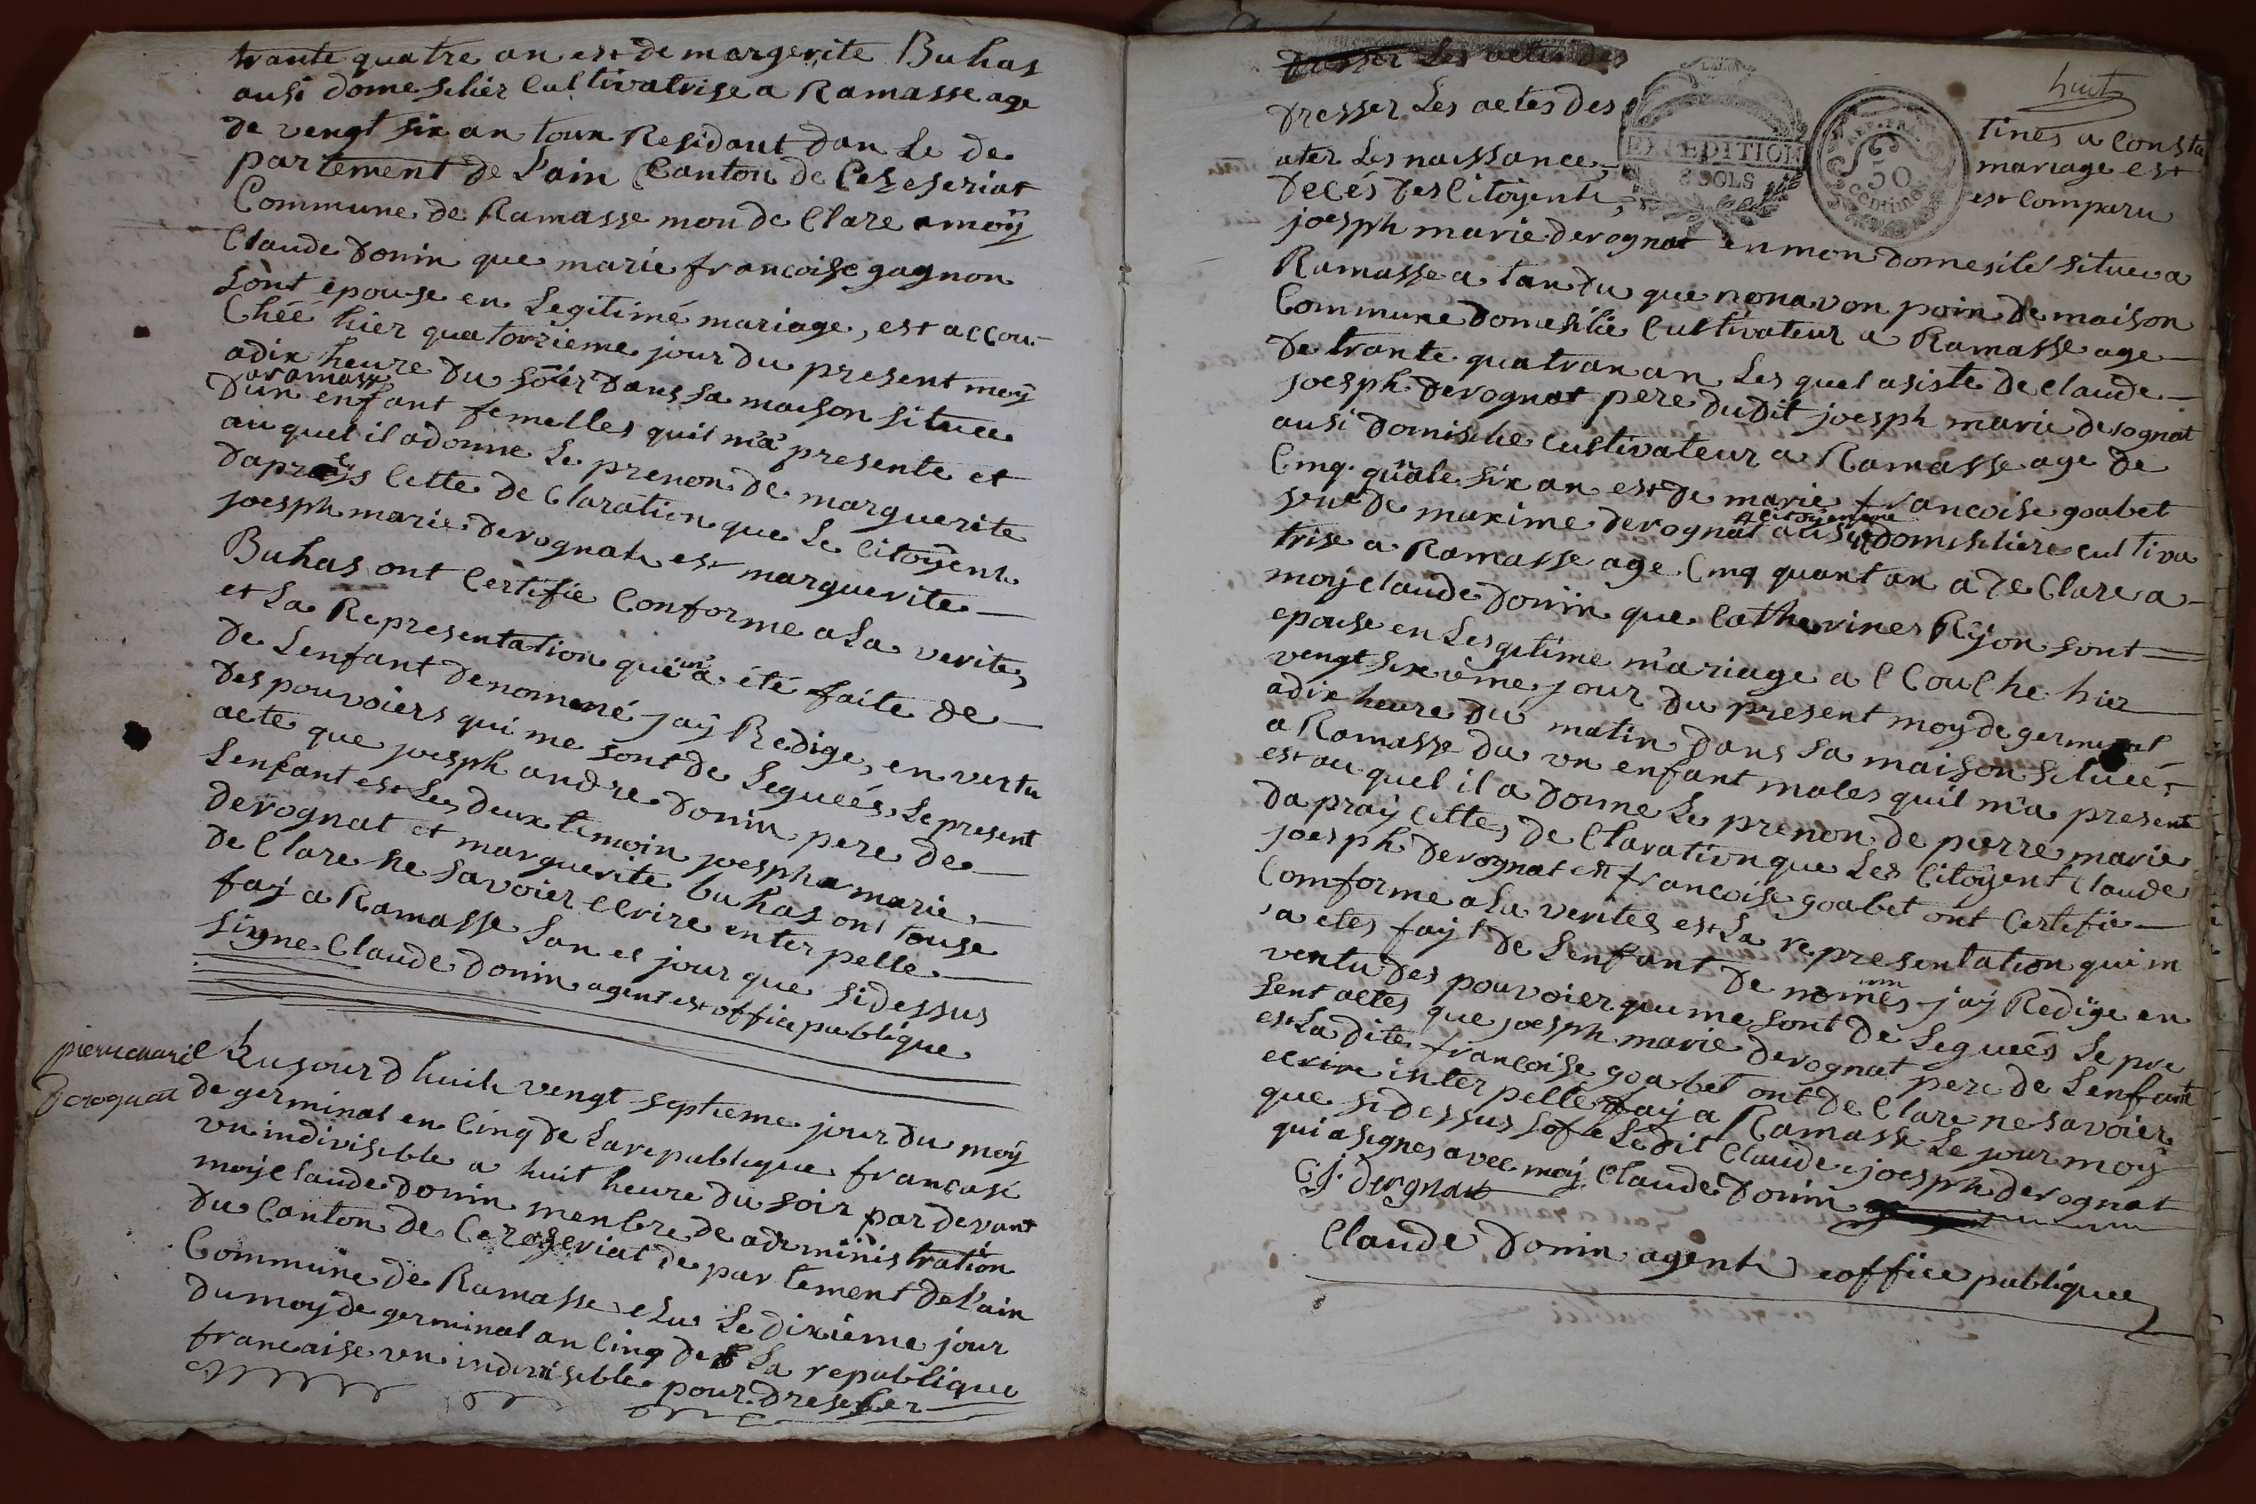 trante quatre an est de margerite Buhas
ausi domeschier Cultivatrise a Ramasse age
de vengt six an toux Residant dan Le de
partement de L'ain Canton de Ceseseriat
Commune de Ramasse mon de Clare a moy
Claude Donin que marie francoise gagnon
sont epouse en Legitime mariage, est accou
Chéé hier quatorzieme jour du present moy
adix heure du soier dans sa maison situee
a ramasse
Dun enfant femelles quil m'a presente et
au quel il adonne Le prenon de marguerite
Daprays Cette de Claration que Le Citoÿent
joesph marie derognat est marguerite
Buhas ont Certifie Conforme a La verite,
et La Representation qui m'a été faite de
de Lenfant denomené jaÿ Redige, en vertu
des pouvoiers qui me sont de Leguéés Le present
acte que joesph andre Donin pere de
Lenfant est Les deux temoin joesph marie
derognat et marguerite buhas ont touse
de Clare ne savoier ecrire enterpelle
faÿ a Ramasse Lan es jour que sidessus
signe Claude Donin agent est office publique
pierre marie
Derognat
Aujourd huit vengt septieme jour du moÿ
de germinal en Cinq de La republique francaise
un indivisible a huit heure du soir par devant
moy Claude Donin menbre de administration
du Canton de Cezeseriat de partement de L'ain
Commune de Ramasse elu Le dixieme jour
du moÿ de germinal an Cinq de La republique
francaise un indivisible pour dresser
huit
dresser Les actes des
dresser Les actes des tines a Consta
ater Les naissance, mariage est
Decés des Citoyent, est Comparu
EXPEDITION
8 SOLS
REP. FRA.
50
Centimes
joesph marie derognat en mon domesile situe a
Ramasse a tandu que nonavon poin de maison
Commune domesilie Cultivateur a Ramasse age
de trante quatran an Les quel asiste de Claude
joesph derognat pere dudit joesph marie derognat
ausi domisilie Cultivateur a Ramasse age de
Cinq quate six an est de marie francoise goabet
vue de maxime derognat ausi domisiliere cultiva
La citoyenne
trise a Ramasse age Cinq quant an a de Clare a
moÿ Claude Donin que Catherine Rÿon sont
epouse en Lesgitime mariage a CCouChe hier
vengt sixieme jour du present moÿ de germinal
adix heure du matin dans sa maison situéé
a Ramasse du un enfant males quil m'a presente
est au quel il a donne Le prenon de pierre marie
Dapraÿ Cettes de Claration que Les Citoÿent Claude
joesph derognat est francoise goabet ont Certifie
Comforme a La verites est La representation qui m
a etes faÿt de Lenfant de nomes jaÿ Redige en
ventu des pouvoier qui me sont de Leguéés Le pre
sent actes que joesph marie derognat pere de Lenfant
est La dite francoise goabet ont de Clare ne savoier
ecrire interpelle faÿ a Ramasse Le jour moÿ
que sidessus Ledit Claude joesph derognat
qui a signes avec moÿ Claude Donin
C J. dergnat
Claude Donin agent office publique